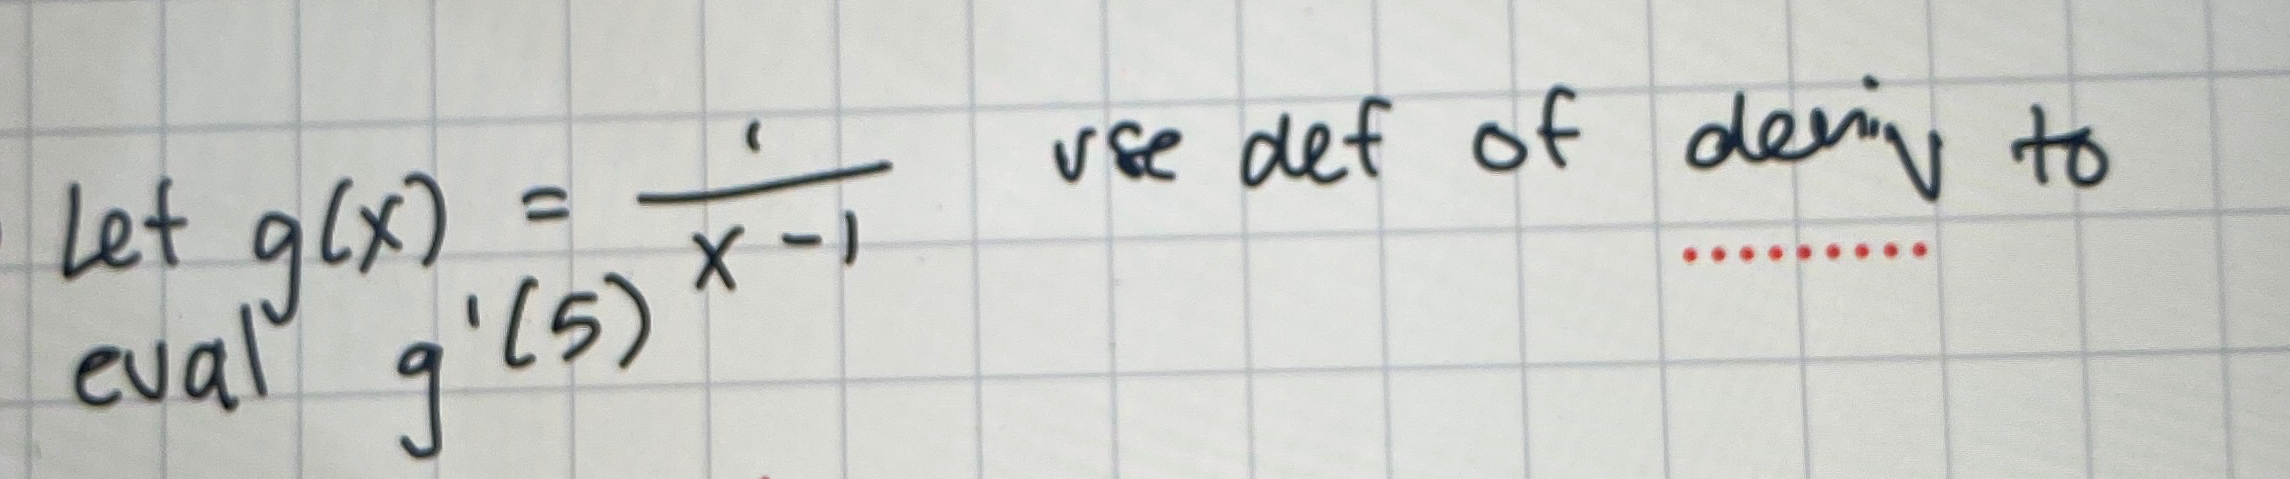 Let g(x) = 1/(x-1) use def of deriv to
eval g'(5)